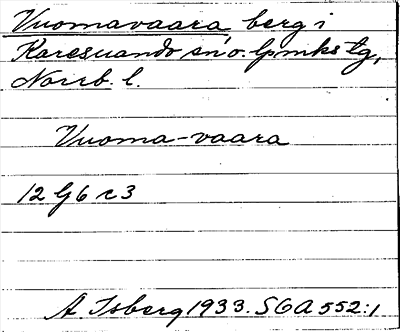 Vuomavaara berg i
Karesuando sn o. lpmks tg,
Norrb. l.
Vuoma-vaara
12 G 6 c 3
A. Isberg 1933. SGA 552:1